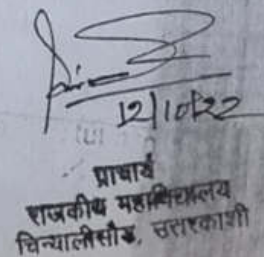 12/10/22
प्राचार्य
राजकीय महाविद्यालय
चिन्यालीसौड, उत्तरकाशी